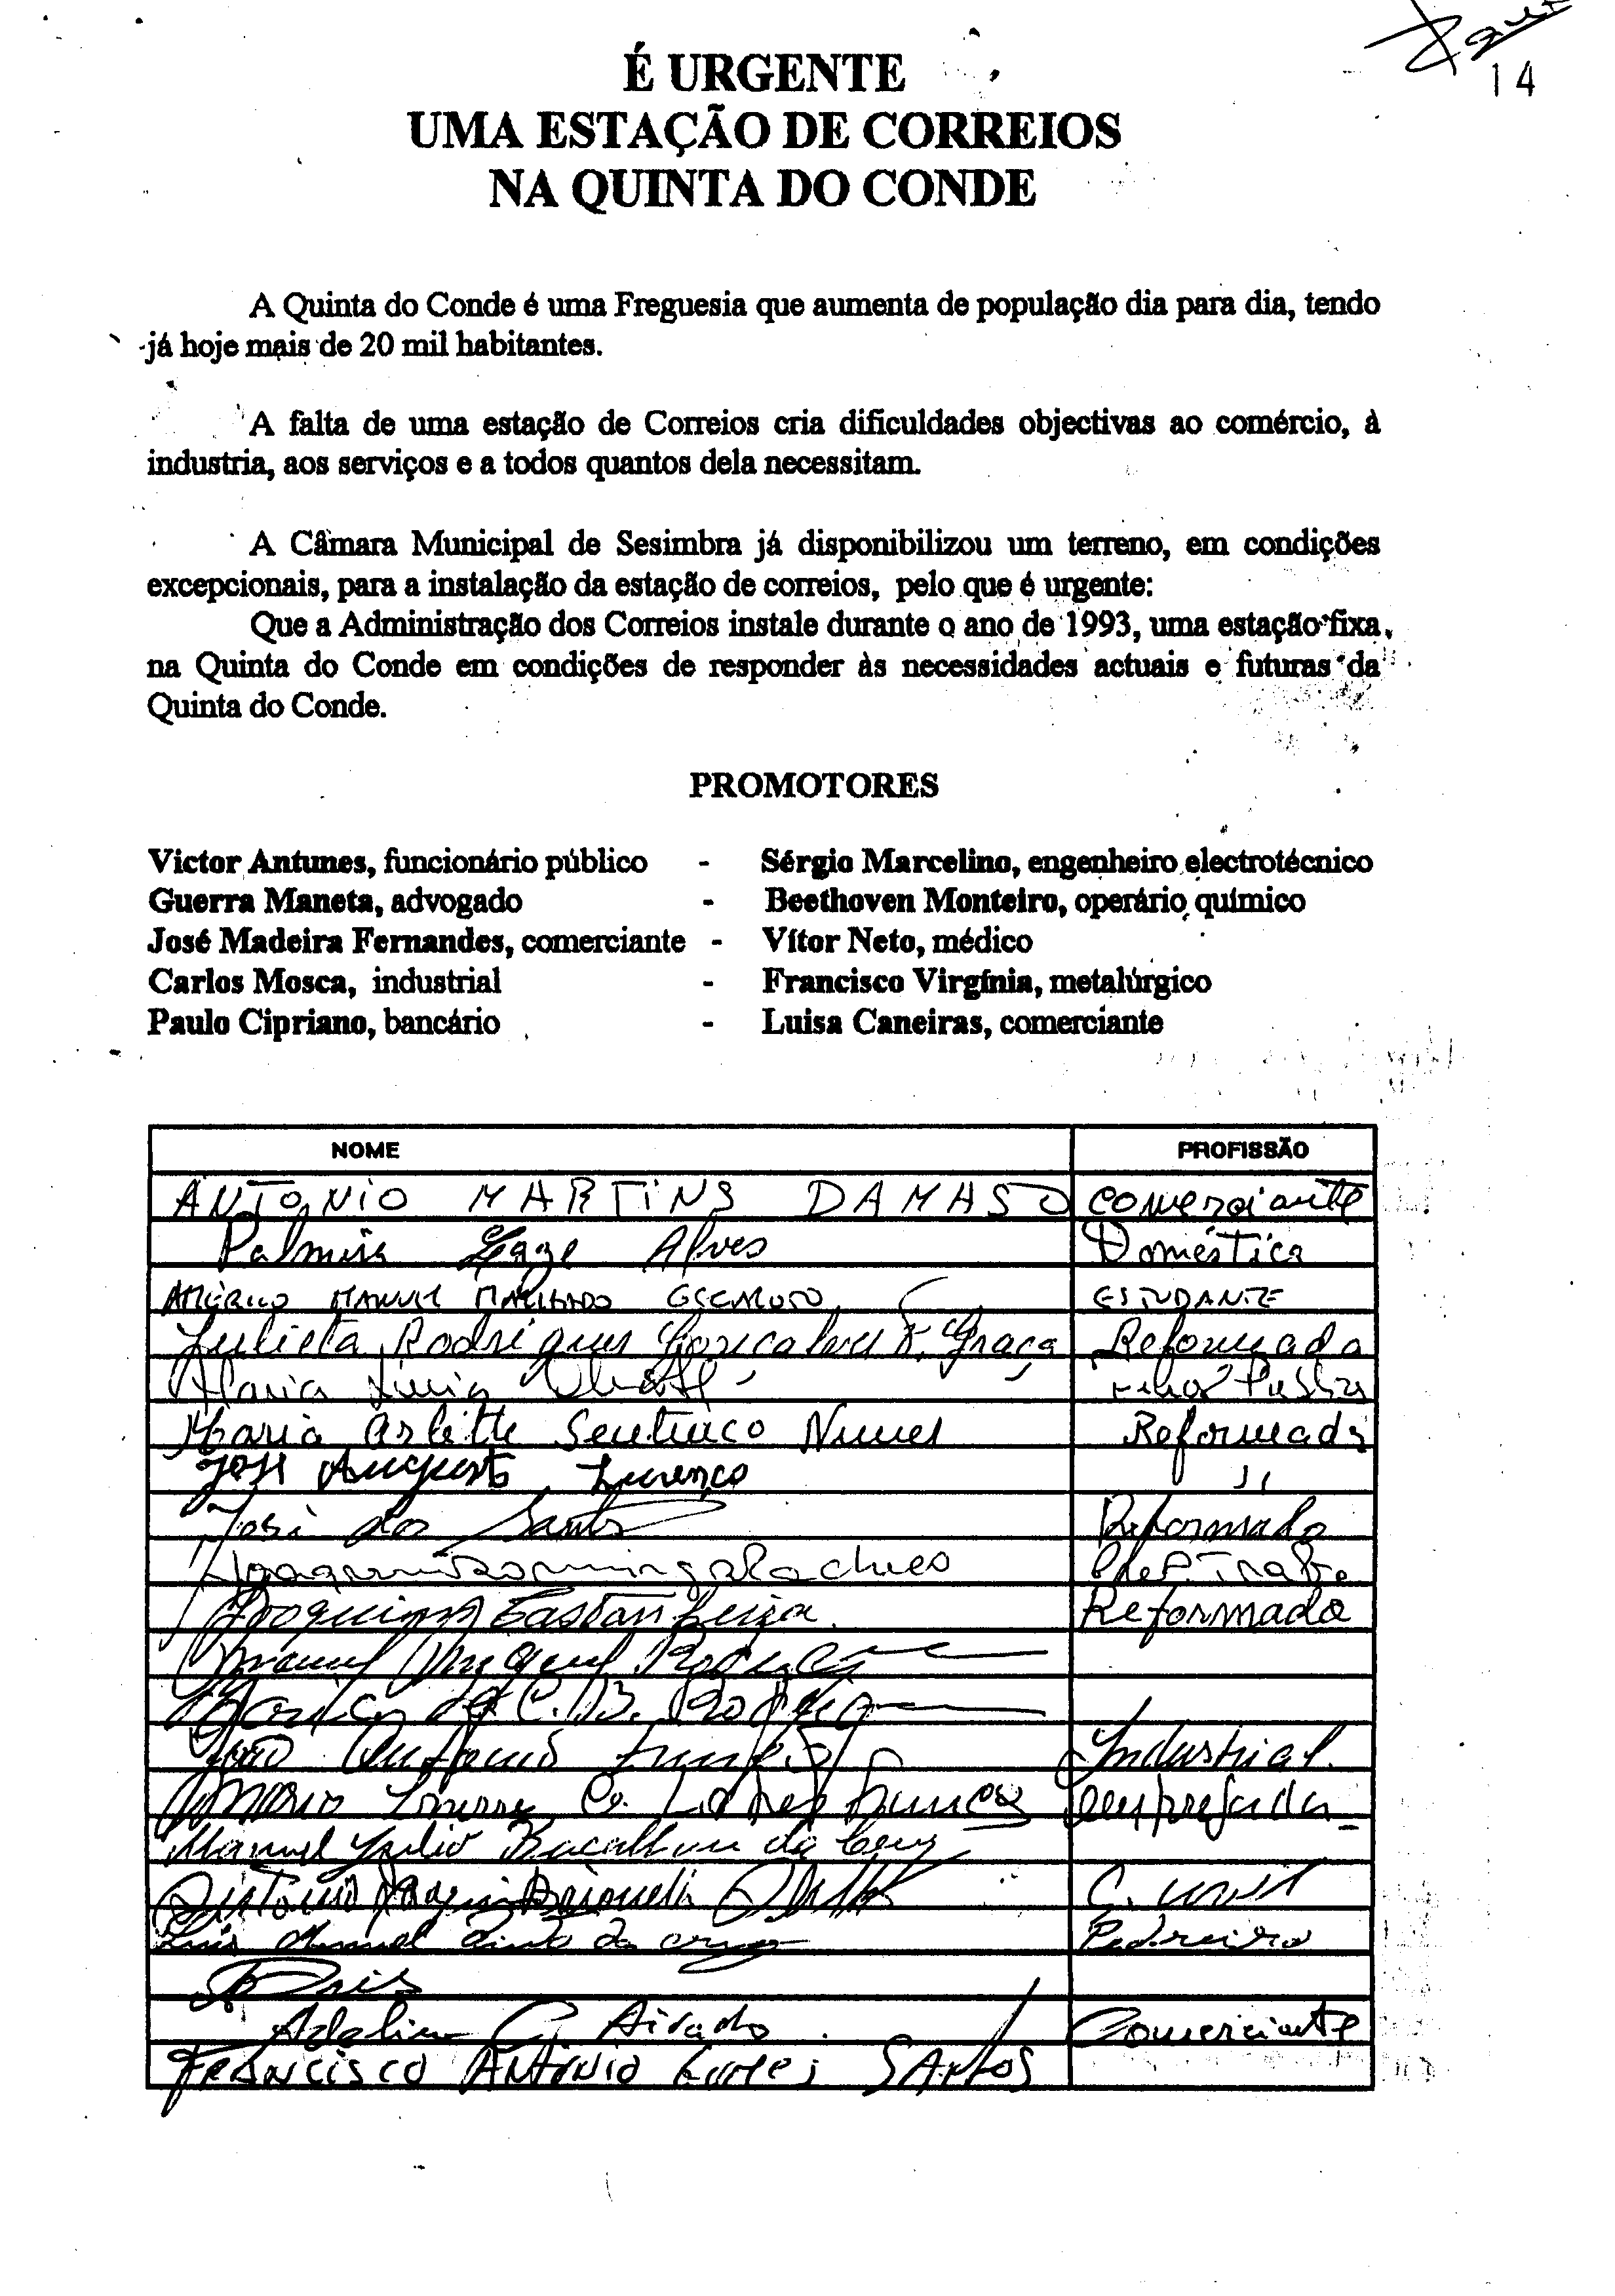 14
É URGENTE
UMA ESTAÇÃO DE CORREIOS
NA QUINTA DO CONDE
A Quinta do Conde é uma Freguesia que aumenta de população dia para dia, tendo
já hoje mais de 20 mil habitantes.
A falta de uma estação de Correios cria dificuldades objectivas ao comércio, à
industria, aos serviços e a todos quantos dela necessitam.
A Câmara Municipal de Sesimbra já disponibilizou um terreno, em condições
excepcionais, para a instalação da estação de correios, pelo que é urgente:
Que a Administração dos Correios instale durante o ano de 1993, uma estação fixa,
na Quinta do Conde em condições de responder às necessidades actuais e futuras da
Quinta do Conde.
PROMOTORES
Victor Antunes, funcionário público - Sérgio Marcelino, engenheiro electrotécnico
Guerra Maneta, advogado - Beethoven Monteiro, operário químico
José Madeira Fernandes, comerciante - Vítor Neto, médico
Carlos Mosca, industrial - Francisco Virgínia, metalúrgico
Paulo Cipriano, bancário - Luisa Caneiras, comerciante
NOME PROFISSÃO
ANTONIO MARTINS DAMASO comerciante
Palmira Alves Doméstica
AMÉRICO MANUEL MACHADO ESTUDANTE
Julieta Rodrigues Gonçalves Graça Reformada
Maria
Maria Arlette Nunes Reformada
José Augusto Lourenço ,,
José dos Santos Reformado
Joaquim Domingos
Joaquim Castanheira Reformado
Manuel Miguel
Maria da C. B.
João António Industrial
Lopes empregada
Manuel Julio Bacalhau da Cruz
António
Luis Manuel Pinto da Pedreiro
Reis
Adelino C. Airado Comerciante
FRANCISCO ANTONIO SANTOS